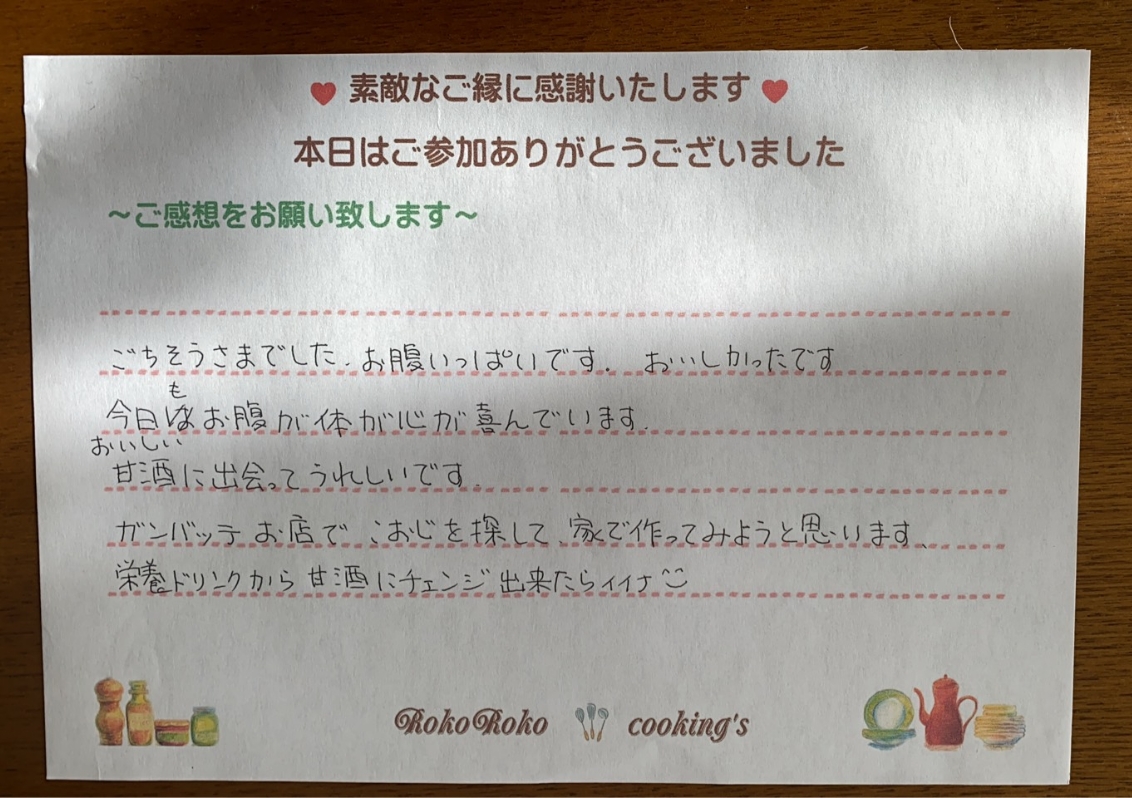 素敵なご縁に感謝いたします
本日はご参加ありがとうございました
～ご感想をお願い致します～
ごちそうさまでした。お腹いっぱいです。 おいしかったです
も
今日はお腹が体が心が喜んでいます。
おいしい
甘酒に出会ってうれしいです。
ガンバッテ お店で こおじを探して、家で作ってみようと思います、
栄養ドリンクから 甘酒にチェンジ 出来たらイイナ
RokoRoko cooking's